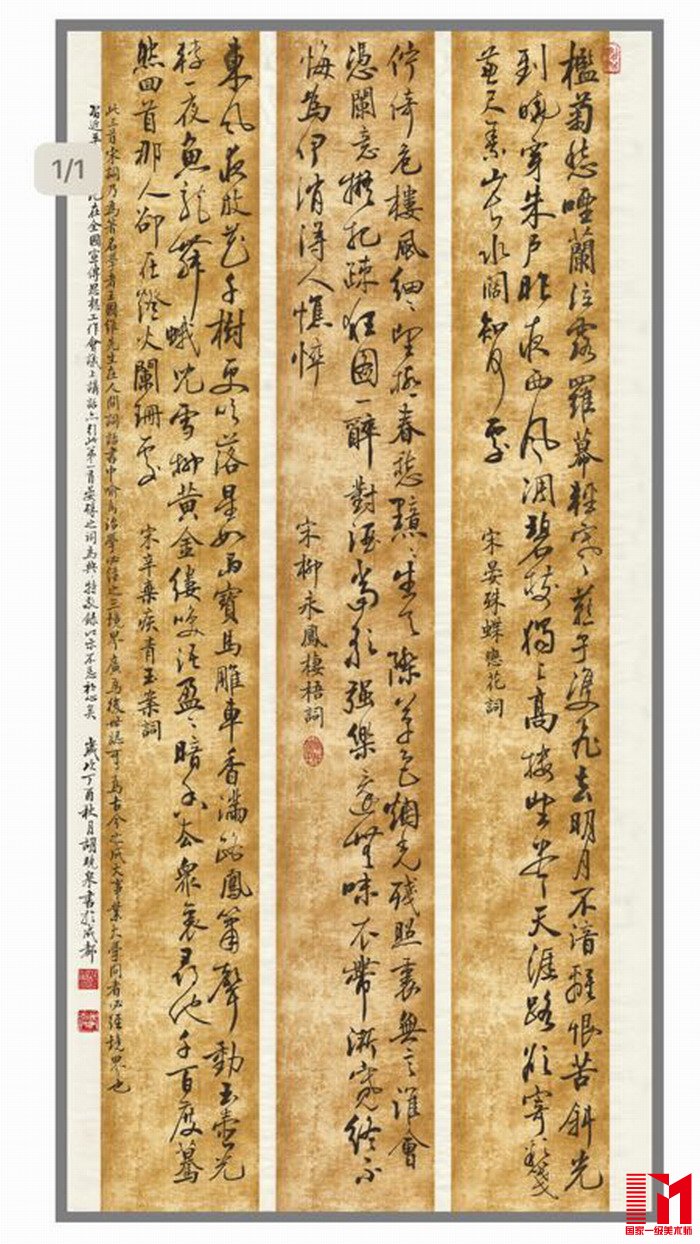 檻菊愁煙蘭泣露羅幕輕寒燕子雙飛去明月不諳離恨苦斜光
到曉穿朱戶昨夜西風凋碧樹獨上高樓望盡天涯路欲寄彩箋
兼尺素山長水闊知何處
宋晏殊蝶戀花詞
佇倚危樓風細〻望極春愁黯〻生天際草色煙光殘照裏無言誰會
憑闌意擬把疎狂圖一醉對酒當歌強樂還無味衣帶漸寬終不
悔為伊消得人憔悴
宋柳永鳳棲梧詞
東風夜放花千樹更吹落星如雨寶馬雕車香滿路鳳簫聲動玉壺光
轉一夜魚龍舞蛾兒雪柳黃金縷笑語盈〻暗香去眾裏尋他千百度驀
然回首那人卻在燈火闌珊處
宋辛棄疾青玉案詞
此三首宋詞乃為著名學者王國維先生在人間詞話書中喻為治學必經之三境界廣為後世認可為古今之成大事業大學問者必經境界也
習近平 記在全國宣傳思想工作會議上講話亦引此第一首晏殊之詞為典特敬錄以示不忘於心矣 歲次丁酉秋月胡曉泉書於成都
1/1
国家一级美术师